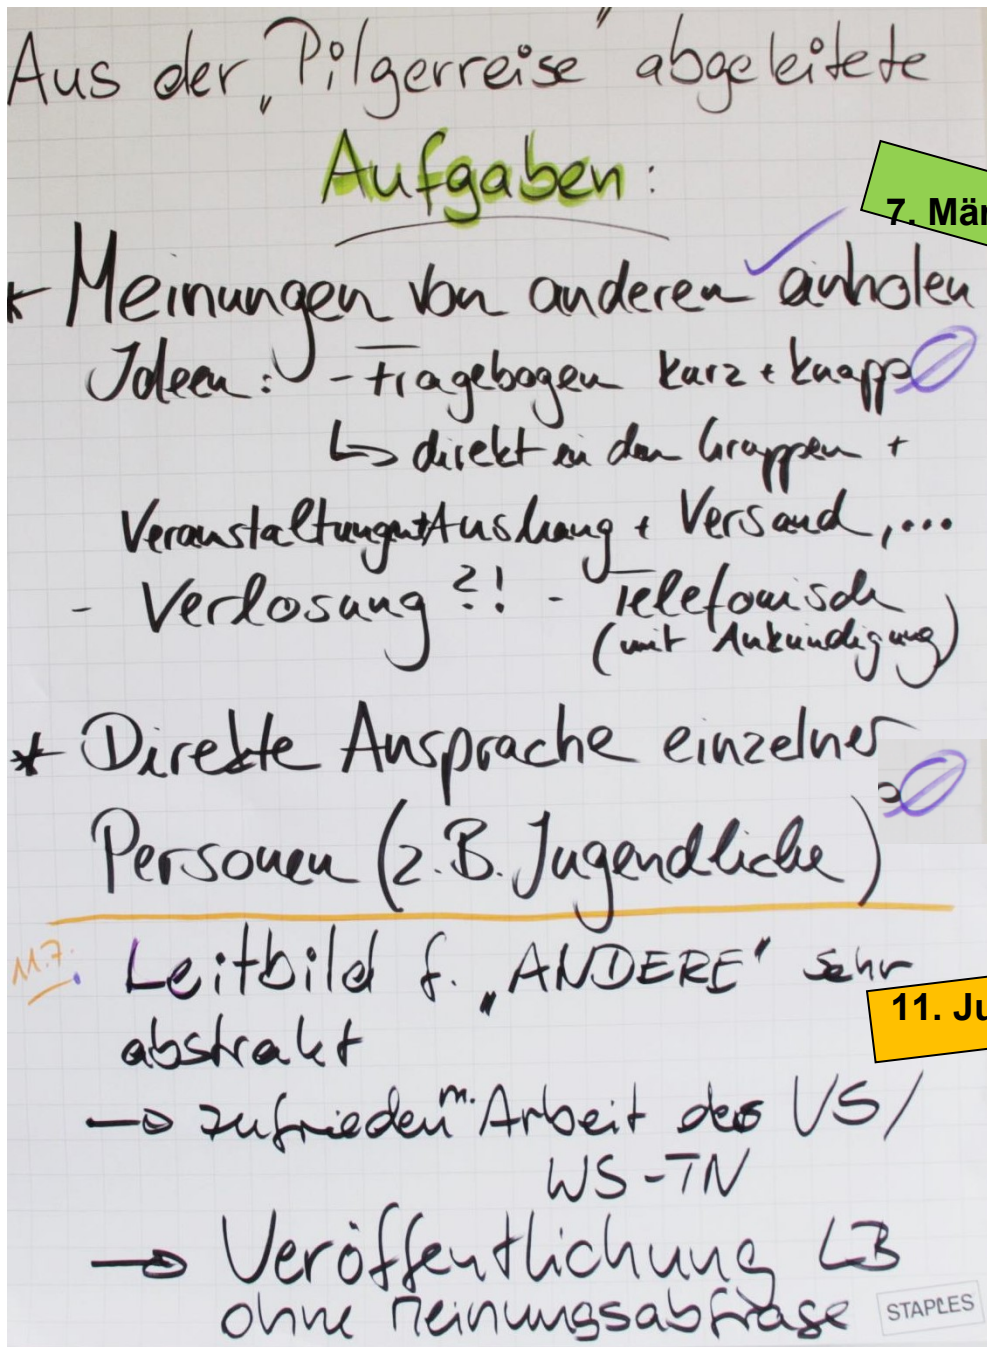 Aus der „Pilgerreise" abgeleitete
Aufgaben:
7. Mär
* Meinungen von anderen einholen
Ideen: - Fragebogen kurz + knapp
↳ direkt in den Gruppen +
Veranstaltungen + Aushang + Versand, ...
- Verlosung ?! - Telefonisch
(mit Ankündigung)
* Direkte Ansprache einzelner
Personen (z.B. Jugendliche)
11.7. Leitbild f. „ANDERE" sehr
11. Ju
abstrakt
→ zufrieden m. Arbeit des VS/
WS-TN
→ Veröffentlichung LB
ohne Meinungsabfrage
STAPLES